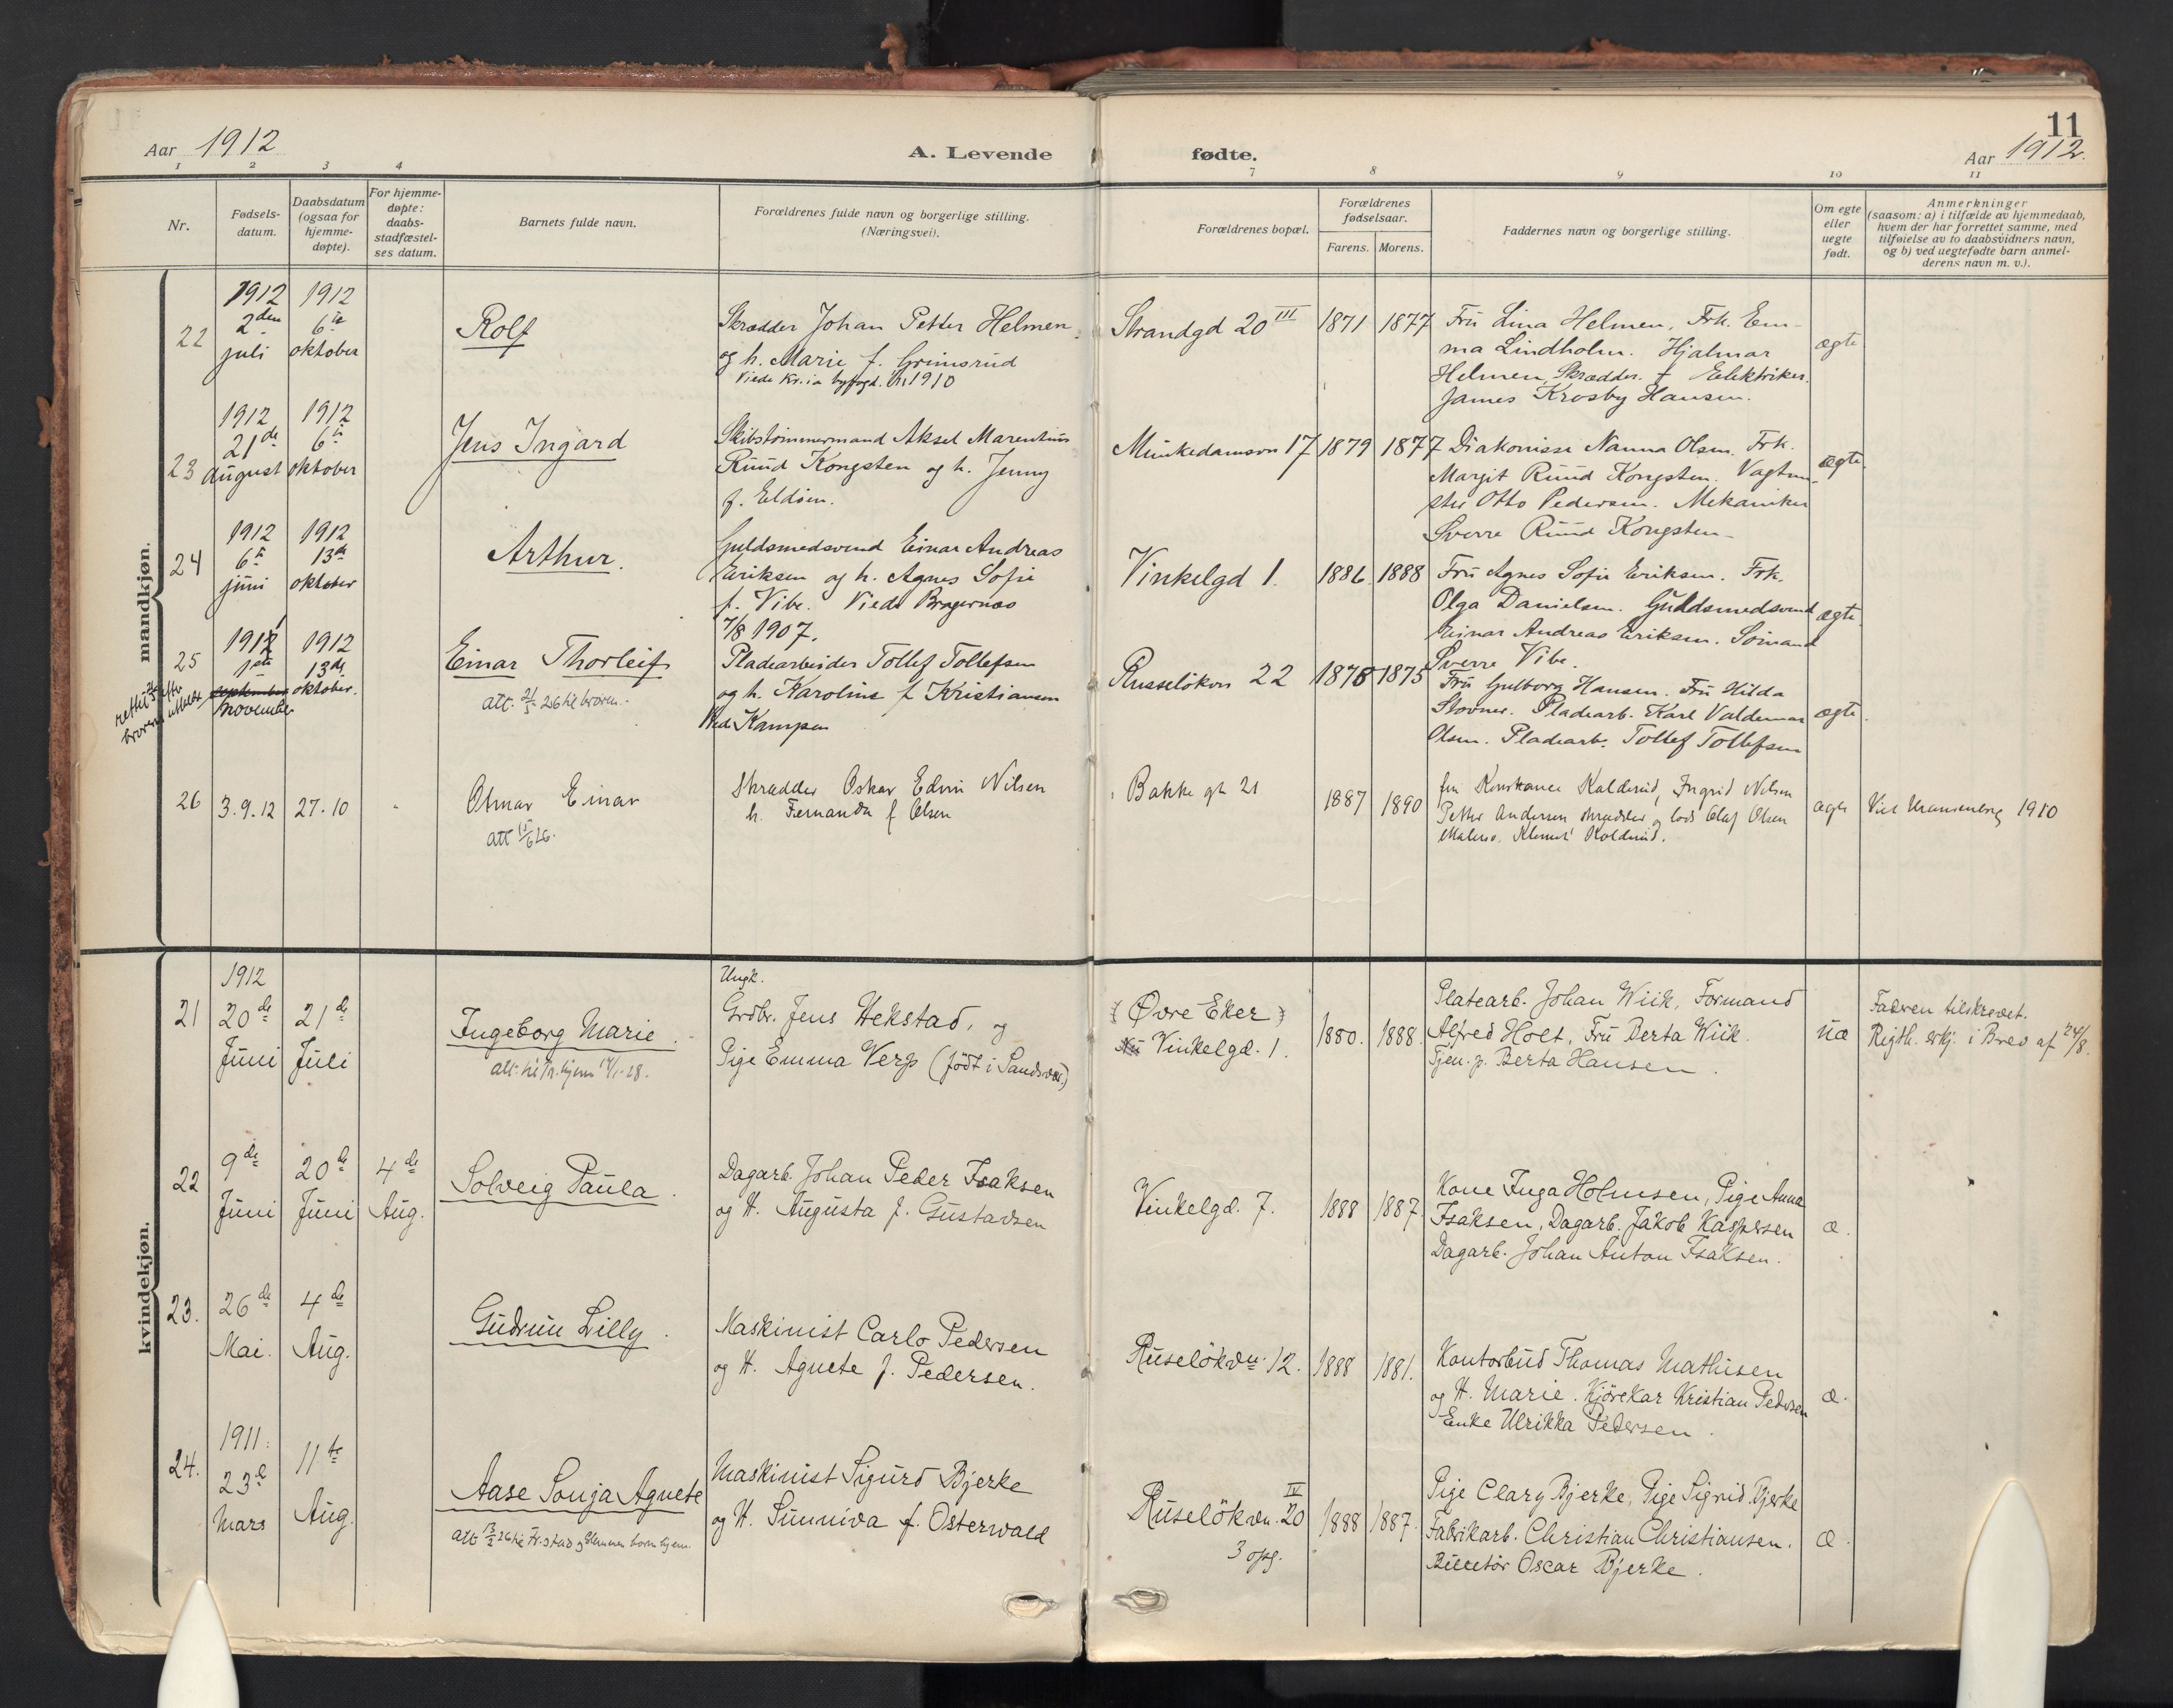 11
Aar 1912
A. Levende fødte.
Aar 1912.
1 2 3 4 7 8 9 10 11
Nr.
Fødsels-
datum.
Daabsdatum
(ogsaa for
hjemme-
døpte).
For hjemme-
døpte:
daabs-
stadfæstel-
ses datum.
Barnets fulde navn.
Forældrenes fulde navn og borgerlige stilling.
(Næringsvei).
Forældrenes bopæl.
Forældrenes
fødselsaar.
Farens. Morens.
Faddernes navn og borgerlige stilling.
Om egte
eller
uegte
født.
Anmerkninger
(saasom: a) i tilfælde av hjemmedaab,
hvem der har forrettet samme, med
tilføielse av to daabsvidners navn,
og b) ved uegtefødte barn anmel-
derens navn m. v.).
mandkjøn.
22
1912
2den
juli
1912
6te
oktober
Rolf
Skrædder Johan Petter Helmen
og h. Marie f. Grimsrud
Viede Kr.ia byfogd. 1910
Strandgd 20 III
1871
1877
Fru Lina Helmen, Frk. Em-
ma Lindholm. Hjalmar
Helmen, Skrædder. Elektriker
James Krosby Hansen.
ægte
23
1912
21de
august
1912
6te
oktober
Jens Ingard
Skibstømmermand Aksel Marentius
Ruud Kongsten og h. Jenny
f. Eldøen.
Munkedamsvn 17
1879
1877
Diakonisse Nanna Olsen. Frk.
Margit Ruud Kongsten. Vagtme-
ster Otto Pedersen. Mekaniker
Sverre Ruud Kongsten
ægte.
24
1912
6te
juni
1912
13de
oktober
Arthur.
Guldsmedsvend Einar Andreas
Eriksen og h. Agnes Sofie
f. Vibe. Viede Bragernæs
7/8 1907.
Vinkelgd 1.
1886.
1888
Fru Agnes Sofie Eriksen. Frk.
Olga Danielsen. Guldsmedsvend
Einar Andreas Eriksen. Sömand
Sverre Vibe.
ægte.
25
1911
1ste
september
november
1912
13de
oktober.
Einar Thorleif
att. 21/5 26 til broren.
Pladearbeider Tollef Tollefsen
og h. Karoline f. Kristiansen
Viede Kampen
Russeløkvn 22
1878
1875
Fru Gulborg Hansen. Fru Hilda
Slovner. Pladearb. Karl Valdemar
Olsen. Pladearb. Tollef Tollefsen
ægte.
26
3.9.12
27.10
Otmar Einar
att 15/6 26.
Skrædder Oskar Edvin Nilsen
h. Fernanda f Olsen
Bakke gt 21
1887
1890
fru Konstance Kolderud, Ingrid Nilsen
Petter Andersen skrædder og lods Olaf Olsen
Kolderud.
ægte
Viet Uranienborg 1910
kvindekjøn.
21
1912
20de
Juni
21de
Juli
Ingeborg Marie.
Ungk.
Grdbr. Jens Hekstad, og
Pige Emma Verp (født i Sandsvær)
(Øvre Eker)
Nu Vinkelgd. 1.
1880.
1888.
Platearb. Johan Wiik, Formand
Alfred Holt, Fru Berta Wiik.
Tjen.p. Berta Hansen.
uæ
Faderen tilskrevet.
Rigth. erkj. i Brev af 24/8.
22
9de
Juni
20de
Juni
4de
Aug.
Solveig Paula.
Dagarb. Johan Peder Isaksen
og H. Augusta f. Gustavsen
Vinkelgd. 7.
1888
1887
Kone Inga Holmsen, Pige Anna
Isaksen, Dagarb. Jakob Kaspersen
Dagarb. Johan Anton Isaksen.
æ.
23.
26de
Mai.
4de
Aug.
Gudrun Lilly.
Maskinist Carlo Pedersen
og H. Agnete f. Pedersen.
Ruseløkvn. 12.
1888
1881.
Kontorbud Thomas Mathisen
og H. Marie. Kjørekar Kristian Pedersen
Enke Ulrikka Pedersen.
æ.
24.
1911.
23de
Mars
11te
Aug.
Aase Sonja Agnete
att 13/2 26 til Fr.stad og Glemmen barnehjem.
Maskinist Sigurd Bjerke
og H. Sunniva f. Osterwald
Ruseløkvn. 20 IV
3 opg.
1888
1887.
Pige Clary Bjerke, Pige Sigrid Bjerke
Fabrikarb. Christian Christiansen.
Billettør Oscar Bjerke.
æ.